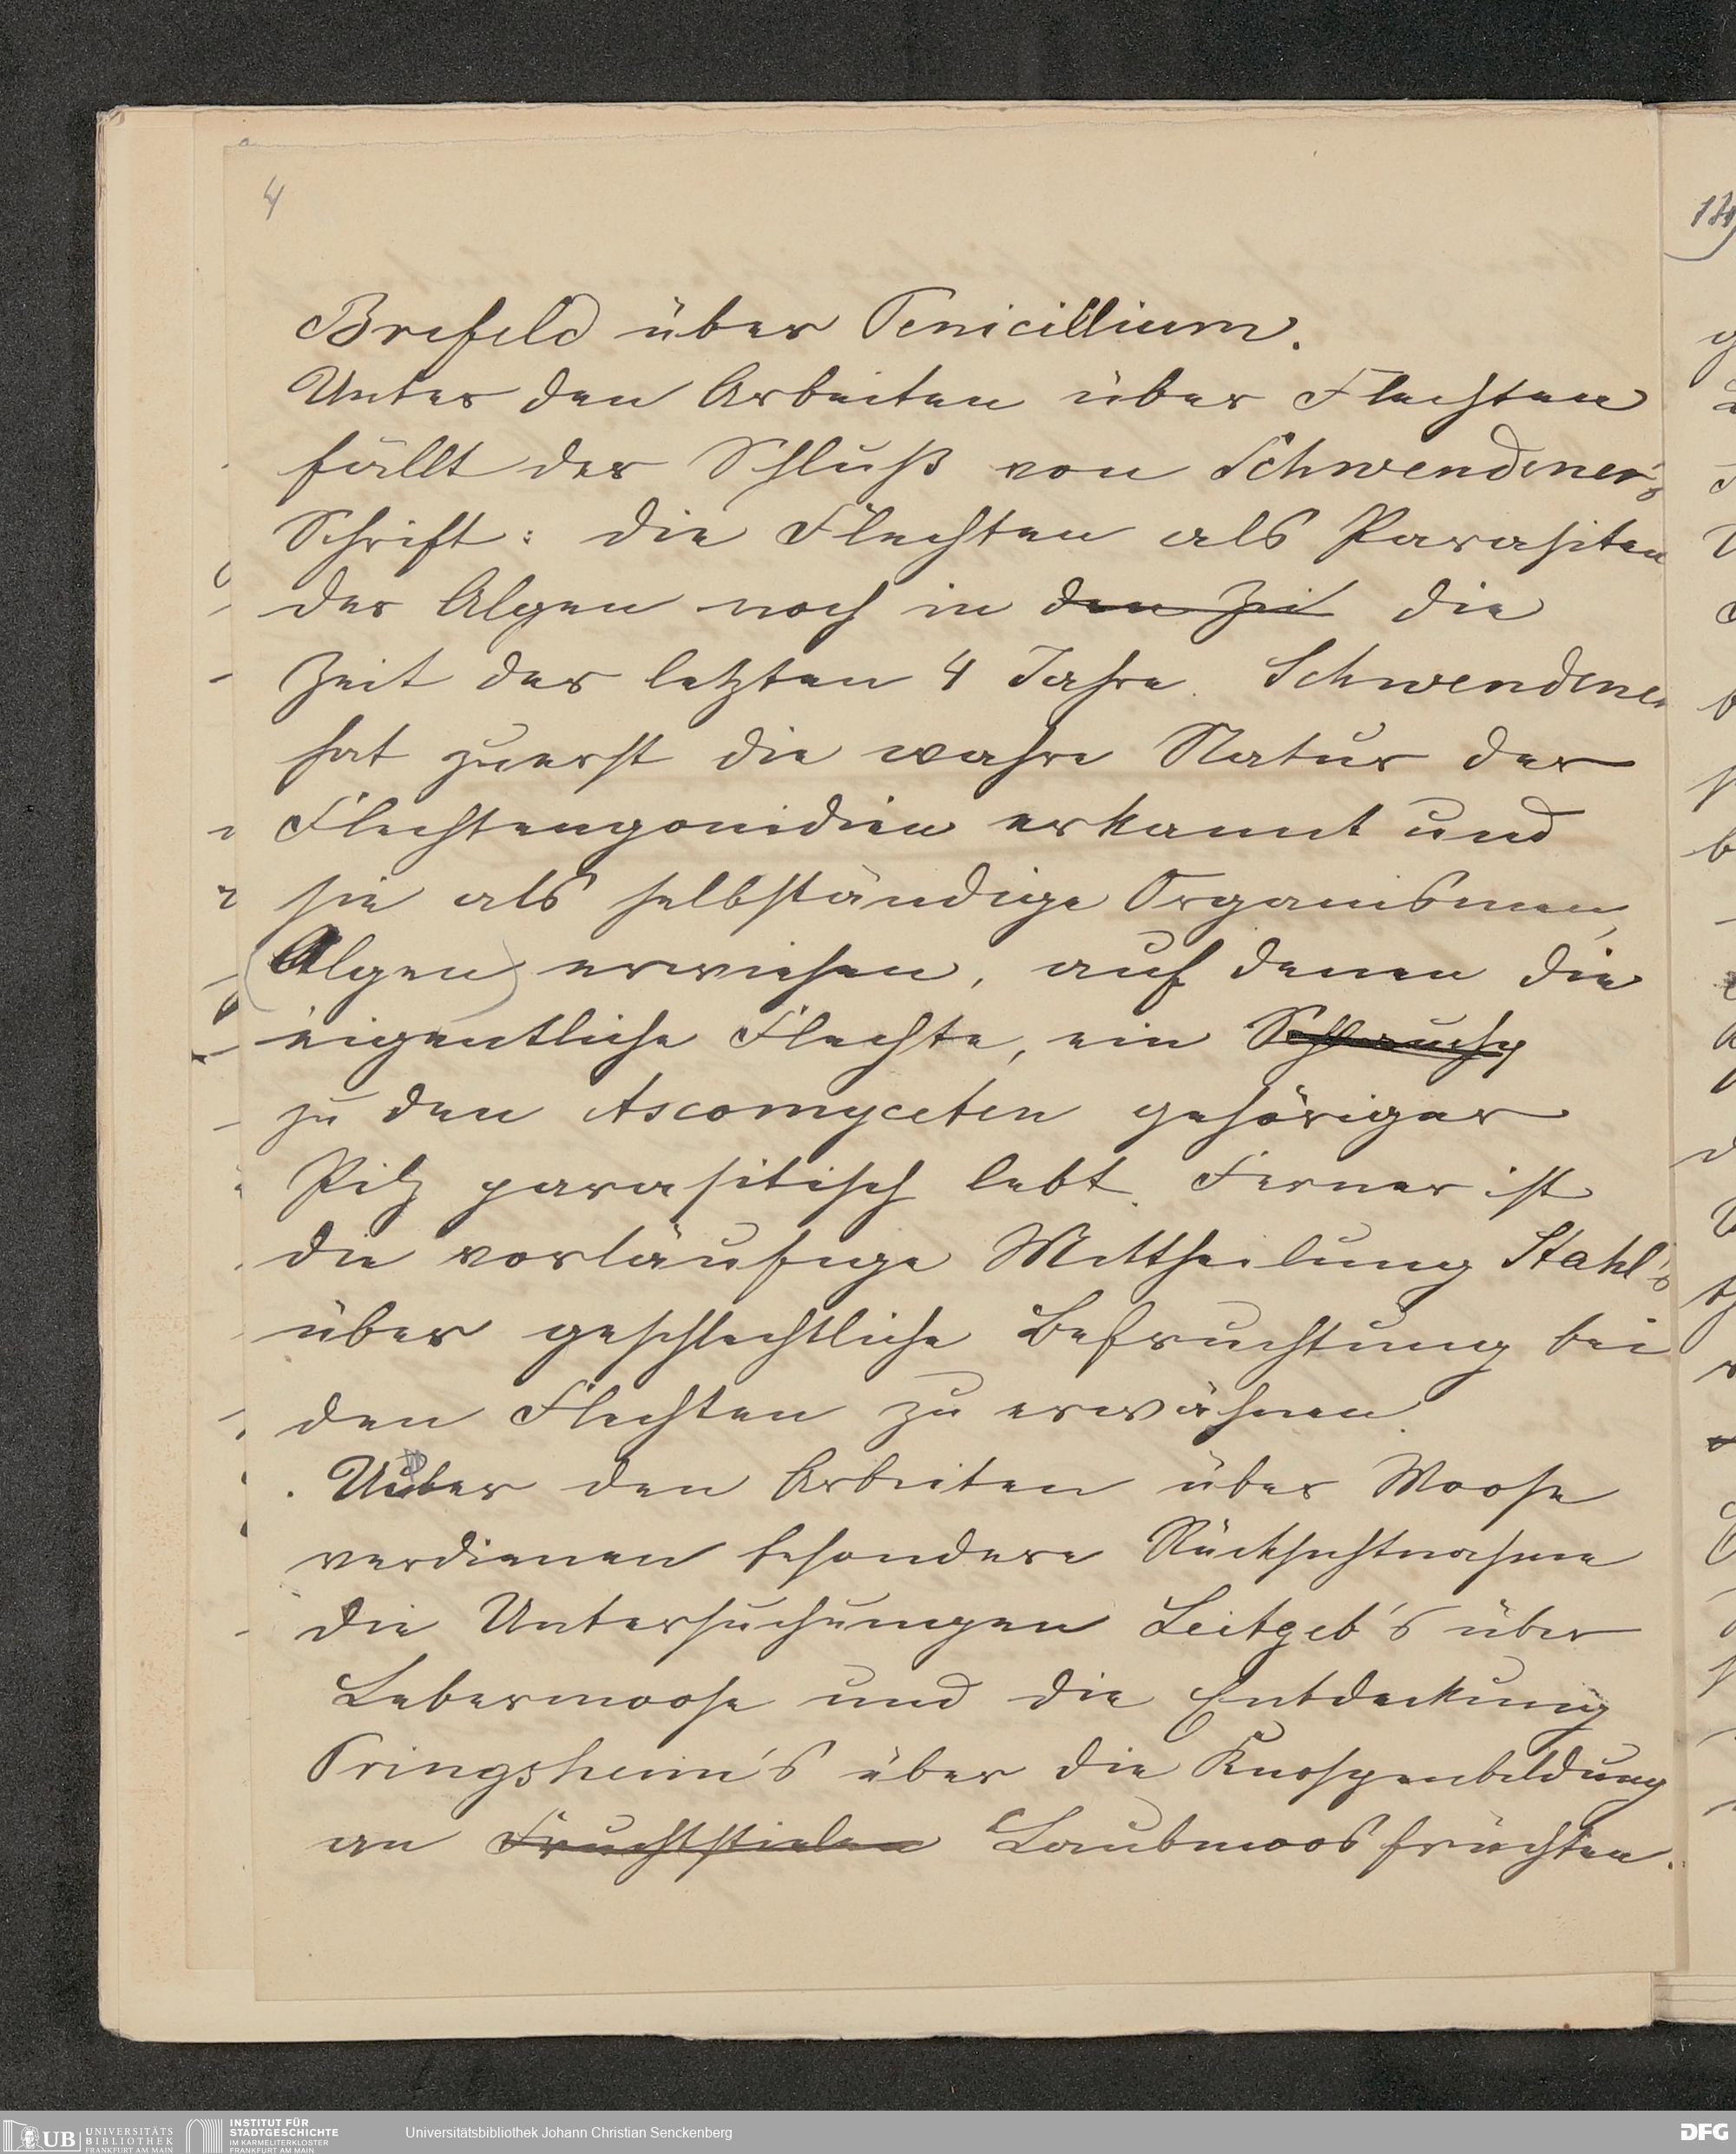 4
Brefeld über Penicillium.
Unter den Arbeiten über Flechten
fällt der Schluß von Schwendener's
Schrift: die Flechten als Parasiten
der Algen noch in den Zei die
Zeit der letzten 4 Jahre. Schwendener
hat zuerst die wahre Natur der
Flechtengonidien erkannt und
sie als selbständige Organismen,
(Algen) erwiesen, auf denen die
eigentliche Flechte, ein Schlauchp
zu den Ascomyceten gehöriger
Pilz parasitisch lebt. Ferner ist
die vorläufige Mittheilung Stahl's
über geschlechtliche Befruchtung bei
den Flechten zu erwähnen.
Unter den Arbeiten über Moose
verdienen besondere Rücksichtnahme
die Untersuchungen Leitgeb's über
Lebermoose und die Entdeckung
Pringsheim's über die Knospenbildung
an Fruchtstielen Laubmoosfrüchten.
UB UNIVERSITÄTS
BIBLIOTHEK
FRANKFURT AM MAIN
INSTITUT FÜR
STADTGESCHICHTE
IM KARMELITERKLOSTER
FRANKFURT AM MAIN
Universitätsbibliothek Johann Christian Senckenberg
DFG